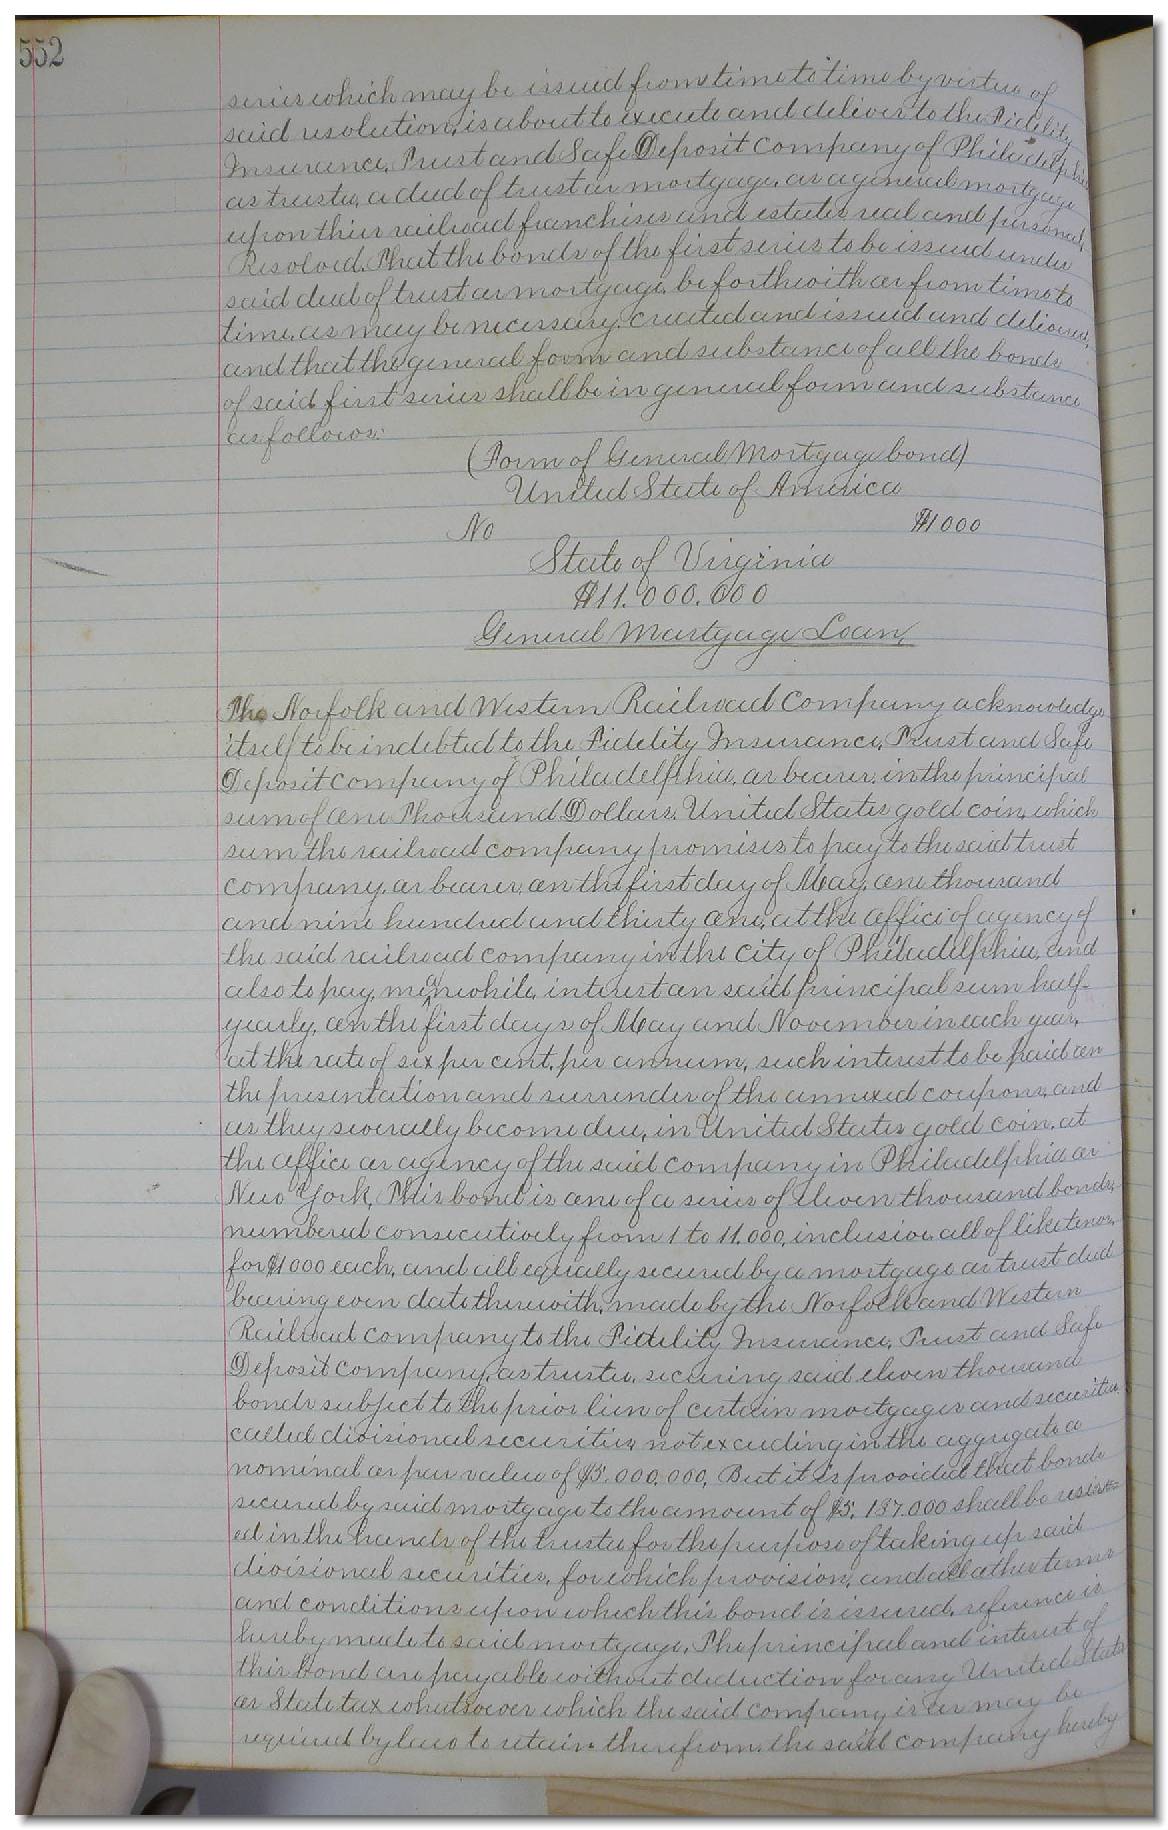 552
series which may be issued from time to time by virtue of
said resolution, is about to execute and deliver to the Fidelity
Insurance, Trust and Safe Deposit Company of Philadelphia
as trustee, a deed of trust or mortgage, as a general mortgage
upon their railroad franchises and estates real and personal,
Resolved, That the bonds of the first series to be issued under
said deed of trust or mortgage, be forthwith or from time to
time, as may be necessary, created and issued and delivered,
and that the general form and substance of all the bonds
of said first series shall be in general form and substance
as follows:
(Form of General Mortgage bond)
United State of America
No $1000
State of Virginia
$11.000.000
General Mortgage Loan,
The Norfolk and Western Railroad Company acknowledge
itself to be indebted to the Fidelity Insurance, Trust and Safe
Deposit Company of Philadelphia, or bearer, in the principal
sum of one Thousand Dollars, United States gold coin, which
sum the railroad company promises to pay to the said trust
company, or bearer, on the first day of May, one thousand
and nine hundred and thirty one, at the office of agency of
the said railroad company in the city of Philadelphia, and
also to pay, meanwhile, interest on said principal sum half-
yearly, on the first days of May and November in each year,
at the rate of six per cent, per annum, such interest to be paid on
the presentation and surrender of the annexed coupons, and
as they severally become due, in United States gold coin, at
the office or agency of the said company in Philadelphia or
New York, This bond is one of a series of eleven thousand bonds,
numbered consecutively from 1 to 11.000, inclusive all of like tenor,
for $1000 each, and all equally secured by a mortgage or trust deed
bearing even date therewith, made by the Norfolk and Western
Railroad company to the Fidelity Insurance, Trust and Safe
Deposit Company, as trustee, securing said eleven thousand
bonds subject to the prior lien of certain mortgages and securities
called divisional securities, not exceeding in the aggregate a
nominal or par value of $5.000.000, But it is provided that bonds
secured by said mortgage to the amount of $5.137.000 shall be
ed in the hands of the trustee for the purpose of taking up said
divisional securities, for which provision, and all other terms
and conditions upon which this bond is issued, reference is
hereby made to said mortgage, The principal and interest of
this bond are payable without deduction for any United States
or State tax whatsoever which the said company is or may be
required by law to retain therefrom, the said company hereby